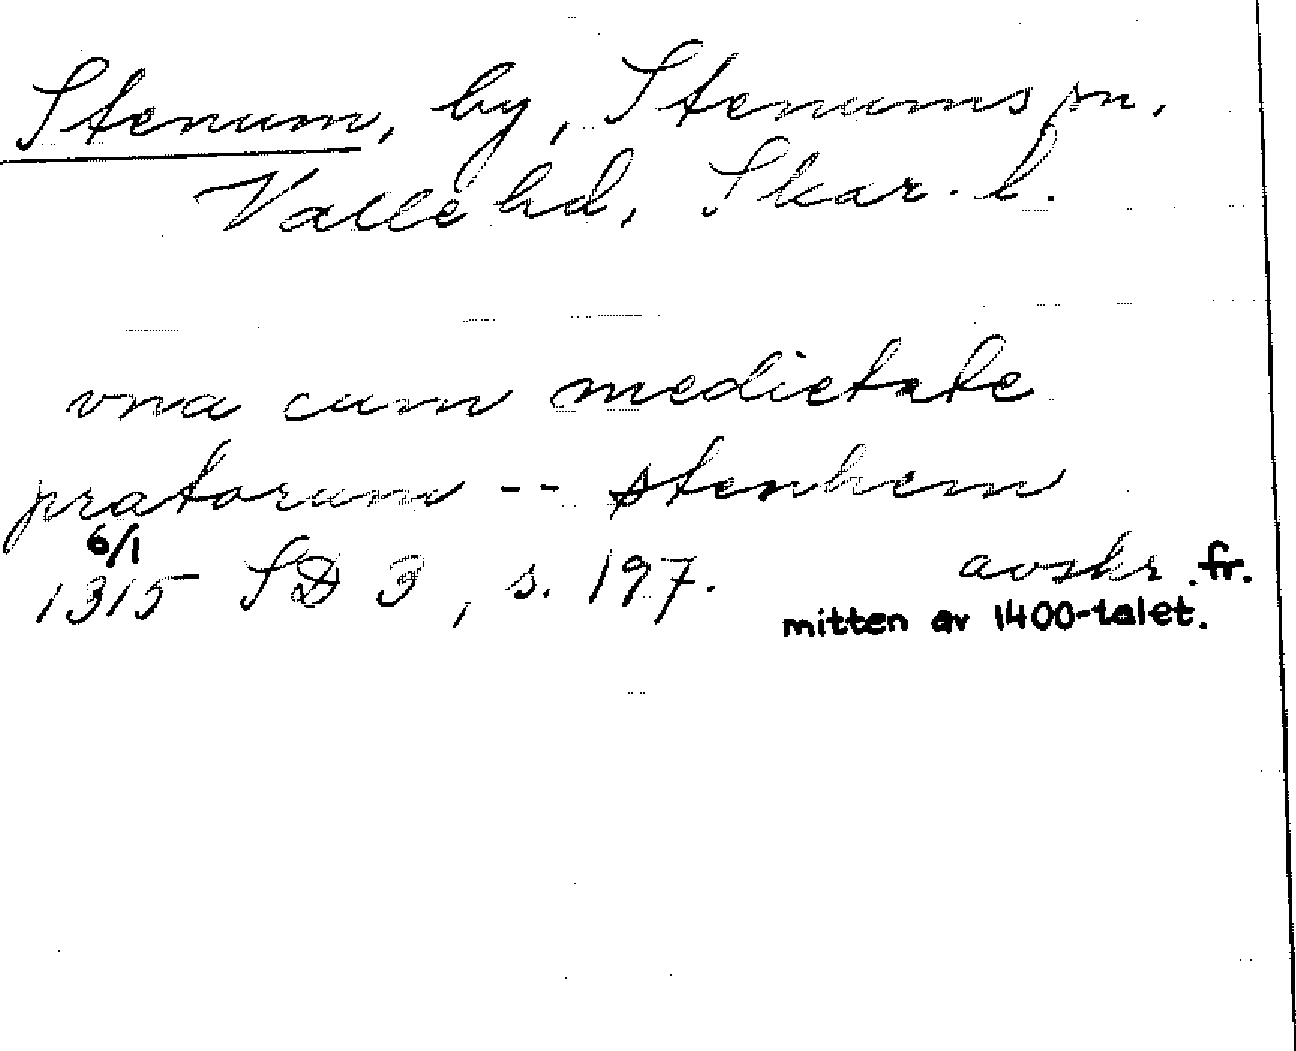 Stenum, by, Stenums sn.
Valle hd, Skar. l.
vna cum medietate
pratorum -- stenhem
6/1
1315 SD 3, s. 197. avskr. fr.
mitten av 1400-talet.